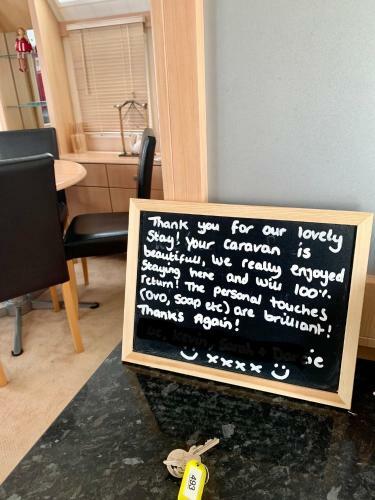 Thank you for our lovely
Stay! Your caravan is
beautifull, we really enjoyed
Staying here and will 100%
return! The personal touches
(ovo, soap etc) are brilliant!
Thanks Again!
xxxx
493